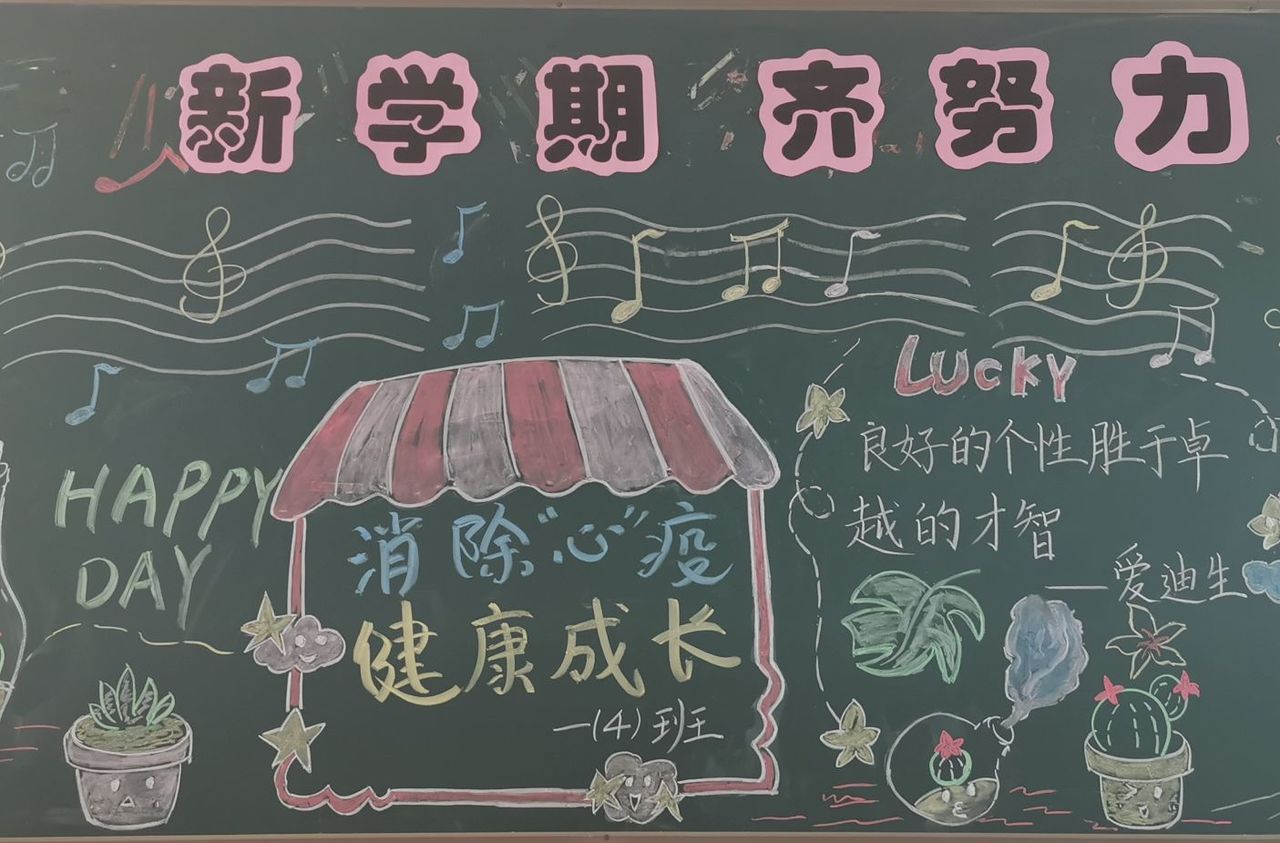 新学期 齐努力
HAPPY
DAY
消除“心”疫
健康成长
一(4)班
LUcKY
良好的个性胜于卓
越的才智
——爱迪生